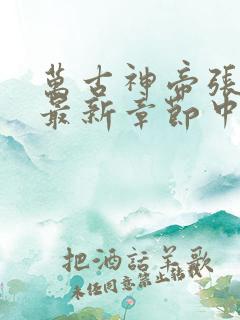 萬古神帝張
最新章節中
把酒話羊歌
未任同意禁止轉載